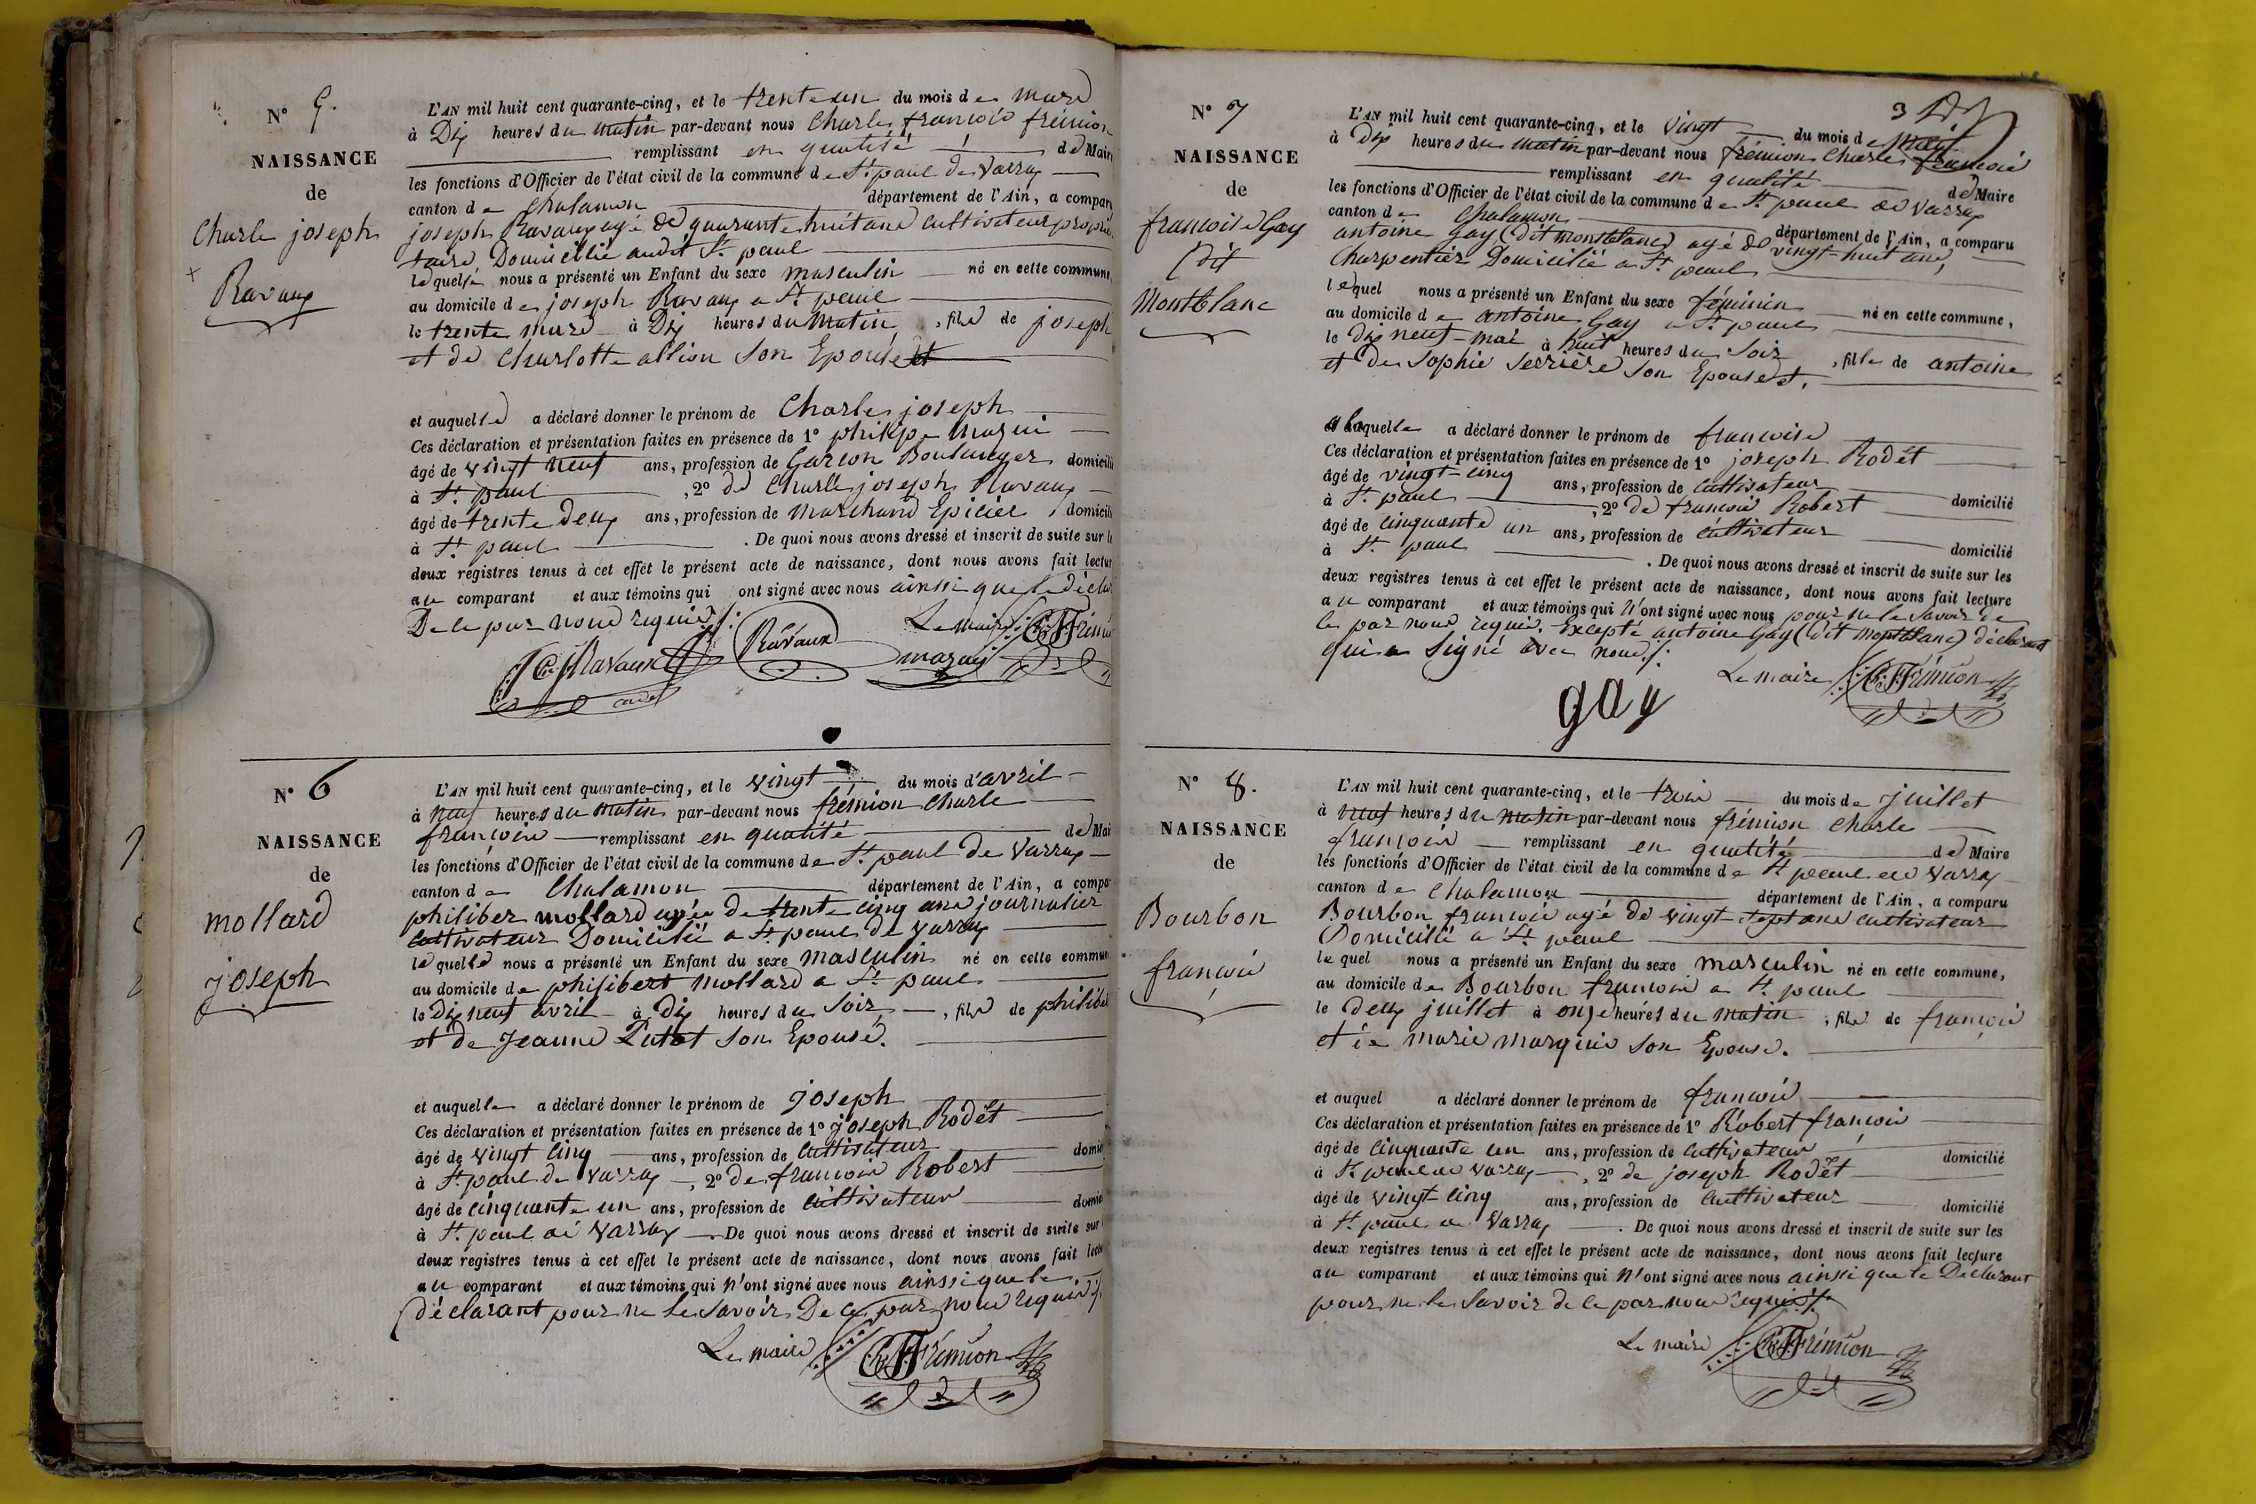 N° 5.
NAISSANCE
de
Charle joseph
Ravaux
L'AN mil huit cent quarante-cinq, et le trente un du mois de mars
à Dix heures du matin par-devant nous Charles françois frémion
remplissant en qualité de Maire
les fonctions d'Officier de l'état civil de la commune de St. paul de Varax
canton de Chalamon département de l'Ain, a compar
joseph Ravaux agé de quarante huit ans Cultivateur proprié
taire Domicillié audit St. paul
lequel nous a présenté un Enfant du sexe masculin né en cette commune,
au domicile de joseph Ravaux a St. paul
le trente mars à Dix heures du matin, fils de joseph
et de Charlotte allion son Epouse et
et auquel a déclaré donner le prénom de Charles joseph
Ces déclaration et présentation faites en présence de 1° philippe mazui
âgé de vingt neuf ans, profession de Garçon Boulanger domicili
à St. paul, 2° de Charle joseph Ravaux
âgé de trente deux ans, profession de marchand Epicier, domicili
à St. paul. De quoi nous avons dressé et inscrit de suite sur l
deux registres tenus à cet effet le présent acte de naissance, dont nous avons fait lectur
au comparant et aux témoins qui ont signé avec nous ainsi que le déclar
De ce par nous requis ./.
Le maire Ch. F. Frémion
Ch. J. Ravaux cadet Ravaux mazuy
N° 6
NAISSANCE
de
mollard
joseph
L'AN mil huit cent quarante-cinq, et le vingt du mois d'avril
à neuf heures du matin par-devant nous frémion Charle
françois remplissant en qualité de Mai
les fonctions d'Officier de l'état civil de la commune de St. paul de Varax
canton de Chalamon département de l'Ain, a compa
philiber mollard agée de trente cinq ans journalier
cultivateur Domicilié a St. paul de Varax
lequel nous a présenté un Enfant du sexe masculin né en cette commun
au domicile de philibert mollard a St. paul
le dix neuf avril à dix heures du Soir, fils de philibe
et de Jeanne Putot son Epouse.
et auquel a déclaré donner le prénom de joseph
Ces déclaration et présentation faites en présence de 1° joseph Rodêt
âgé de vingt cinq ans, profession de cultivateur domi
à St. paul de Varax, 2° de françois Robert
âgé de cinquante un ans, profession de cultivateur domi
à St. paul de Varax. De quoi nous avons dressé et inscrit de suite sur
deux registres tenus à cet effet le présent acte de naissance, dont nous avons fait lect
au comparant et aux témoins qui n'ont signé avec nous ainssi que le
déclarant pour ne le Savoir De ce par nous requis ./.
Le maire Ch. F. Frémion
N° 7
NAISSANCE
de
françoise Gay
(dit
Montblanc
3
L'AN mil huit cent quarante-cinq, et le vingt du mois de Mai
à dix heures du matin par-devant nous frémion Charles françois
remplissant en qualité de Maire
les fonctions d'Officier de l'état civil de la commune de St. paul de Varax
canton de Chalamon département de l'Ain, a comparu
antoine Gay (dit montblanc) agé de vingt-huit ans,
Charpentier Domicilié a St. paul
lequel nous a présenté un Enfant du sexe féminin né en cette commune,
au domicile de antoine Gay a St. paul
le dix neuf mai à huit heures du Soir, fille de antoine
et De Sophie Serrière son Epouse et.
a laquelle a déclaré donner le prénom de françoise
Ces déclaration et présentation faites en présence de 1° joseph Rodêt
âgé de vingt-cinq ans, profession de cultivateur domicilié
à St. paul, 2° de françois Robert
âgé de cinquante un ans, profession de cultivateur domicilié
à St. paul. De quoi nous avons dressé et inscrit de suite sur les
deux registres tenus à cet effet le présent acte de naissance, dont nous avons fait lecture
au comparant et aux témoins qui n'ont signé avec nous pour ne le Savoir de
ce par nous requis. Excepté antoine Gay (dit montblanc) déclarant
qui a signé avec nous ./.
Le maire Ch. F. Frémion
gay
N° 8.
NAISSANCE
de
Bourbon
françois
L'AN mil huit cent quarante-cinq, et le trois du mois de juillet
à neuf heures du matin par-devant nous frémion Charle
françois remplissant en qualité de Maire
les fonctions d'Officier de l'état civil de la commune de St. paul de Varax
canton de Chalamon département de l'Ain, a comparu
Bourbon françois agé de vingt-sept ans cultivateur
Domicilié a St. paul
lequel nous a présenté un Enfant du sexe masculin né en cette commune,
au domicile de Bourbon françois a St. paul
le deux juillet à onze heures du matin, fils de françois
et de marie marquis son Epouse.
et auquel a déclaré donner le prénom de françois
Ces déclaration et présentation faites en présence de 1° Robert françois
âgé de cinquante un ans, profession de cultivateur domicilié
à St. paul de Varax, 2° de joseph Rodêt
âgé de vingt-cinq ans, profession de cultivateur domicilié
à St. paul de Varax. De quoi nous avons dressé et inscrit de suite sur les
deux registres tenus à cet effet le présent acte de naissance, dont nous avons fait lecture
au comparant et aux témoins qui n'ont signé avec nous ainsi que le Déclarant
pour ne le Savoir de ce par nous requis ./.
Le maire Ch. F. Frémion